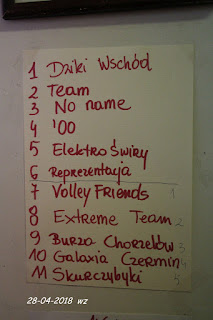 1 Dziki Wschód
2 Team
3 No name
4 '00
5 Elektro Świry
6 Reprezentacja
7 Volley Friends 1
8 Extreme Team 2
9 Burza Chorzelów 3
10 Galaxia Czermin 4
11 Skurczybyki 5
28-04-2018 wz